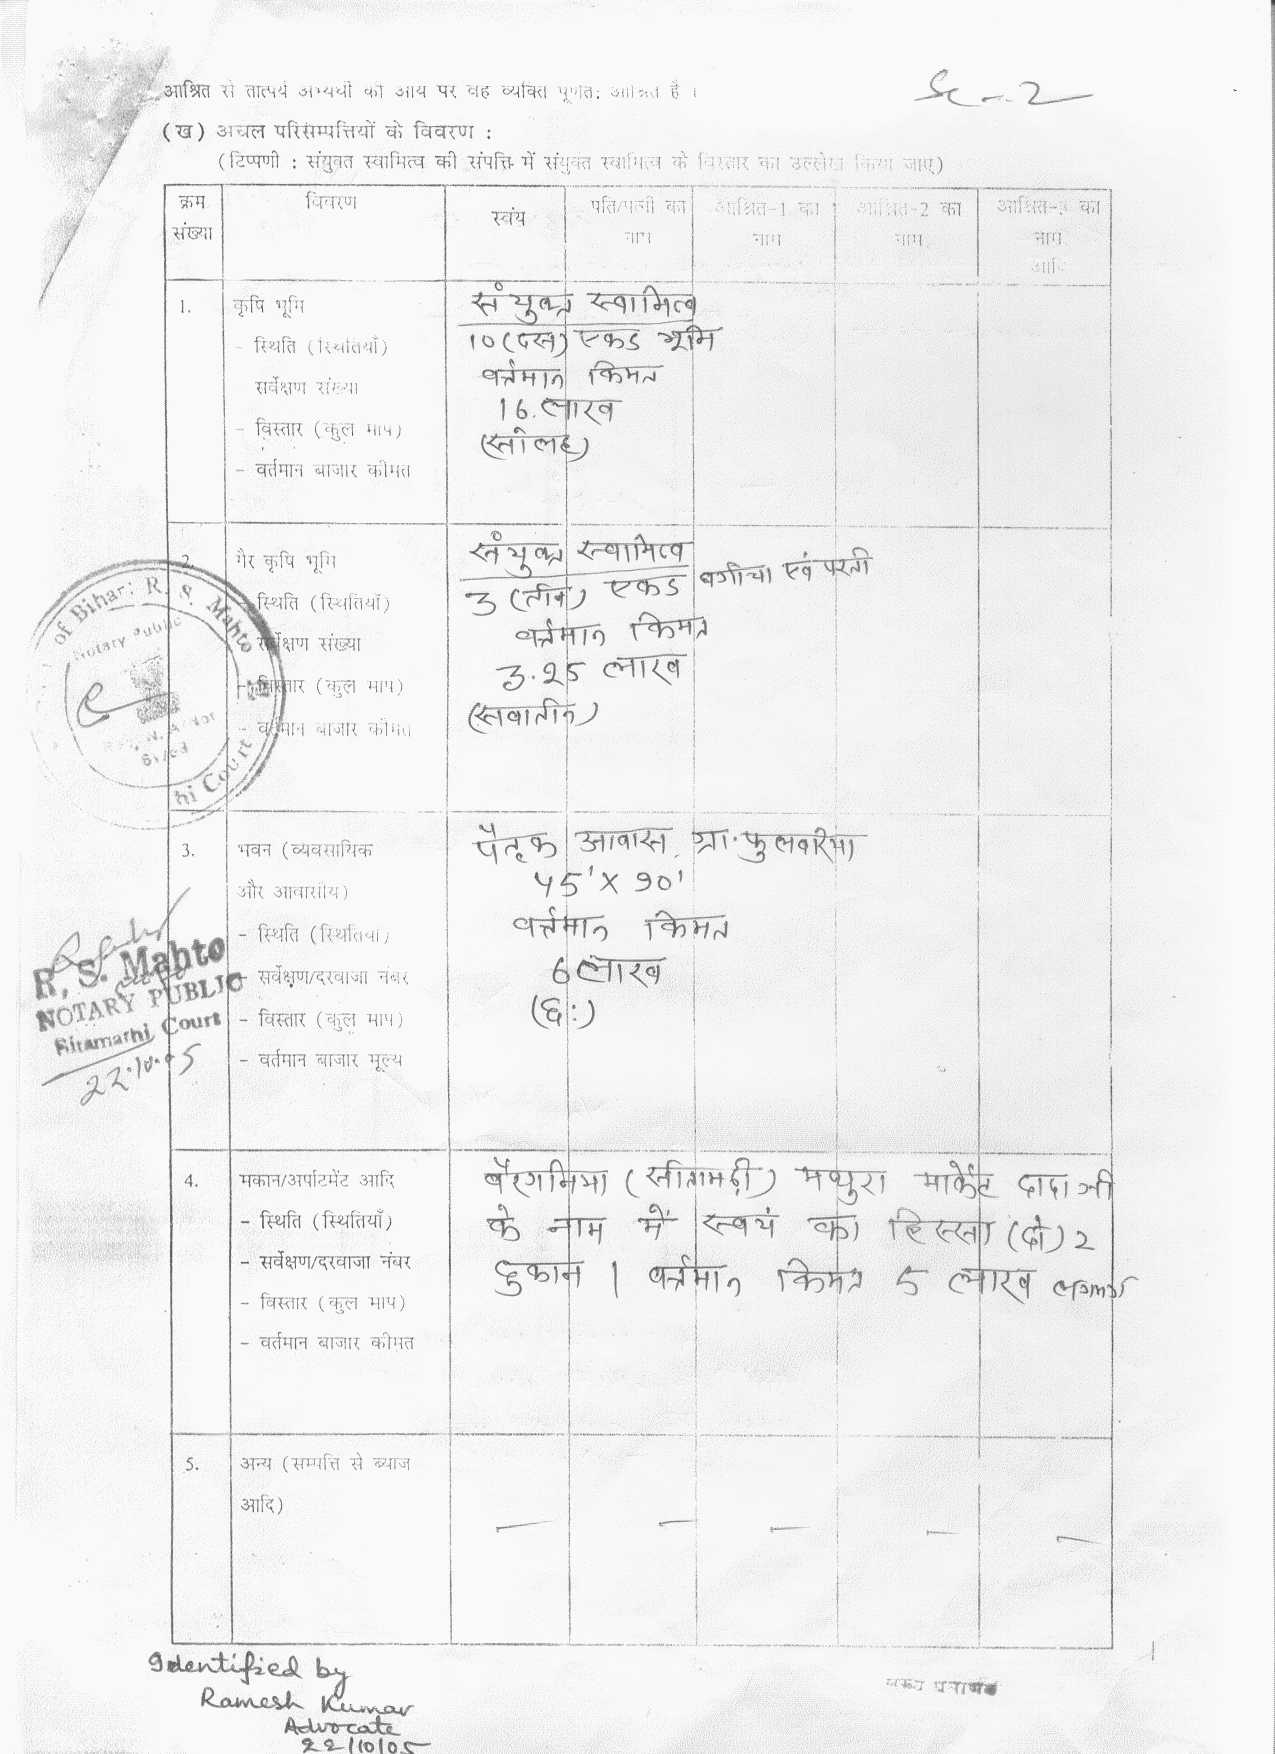 आश्रित से तात्पर्य अभ्यर्थी की आय पर वह व्यक्ति पूर्णत: आश्रित है ।
(ख) अचल परिसम्पत्तियों के विवरण :
(टिप्पणी : संयुक्त स्वामित्व की संपत्ति में संयुक्त स्वामित्व के विस्तार का उल्लेख किया जाए)
क्रम संख्या
विवरण
स्वंय
पति/पत्नी का नाम
आश्रित-1 का नाम
आश्रित-2 का नाम
आश्रित-3 का नाम आदि
1.
कृषि भूमि
- स्थिति (स्थितियाँ)
सर्वेक्षण संख्या
- विस्तार (कुल माप)
- वर्तमान बाजार कीमत
संयुक्त स्वामित्व
10 (दस) एकड भूमि
वर्त्तमान किमत
16.लाख
(सोलह)
2.
गैर कृषि भूमि
- स्थिति (स्थितियाँ)
- सर्वेक्षण संख्या
- विस्तार (कुल माप)
- वर्तमान बाजार कीमत
संयुक्त स्वामित्व
3 (तीन) एकड बगीचा एवं परती
वर्त्तमान किमत
3.25 लाख
(सवातीन)
of Bihar: R. S. Mahto
Notary Public
hi Court
3.
भवन (व्यवसायिक
और आवासीय)
- स्थिति (स्थितियां)
- सर्वेक्षण/दरवाजा नंबर
- विस्तार (कुल माप)
- वर्तमान बाजार मूल्य
पैतृक आवास ग्रा. फुलवरिया
45' X 90'
वर्त्तमान किमत
6 लाख
(छ:)
R. S. Mahto
NOTARY PUBLIC
Sitamarhi Court
22.10.05
4.
मकान/अर्पाटमेंट आदि
- स्थिति (स्थितियाँ)
- सर्वेक्षण/दरवाजा नंबर
- विस्तार (कुल माप)
- वर्तमान बाजार कीमत
बैरगनिया (सीतामढ़ी) मथुरा मार्केट दादा जी
के नाम में स्वयं का हिस्सा (दो) 2
दुकान । वर्त्तमान किमत 5 लाख लगभग
5.
अन्य (सम्पत्ति से ब्याज
आदि)
Identified by
Ramesh Kumar
Advocate
22/10/05